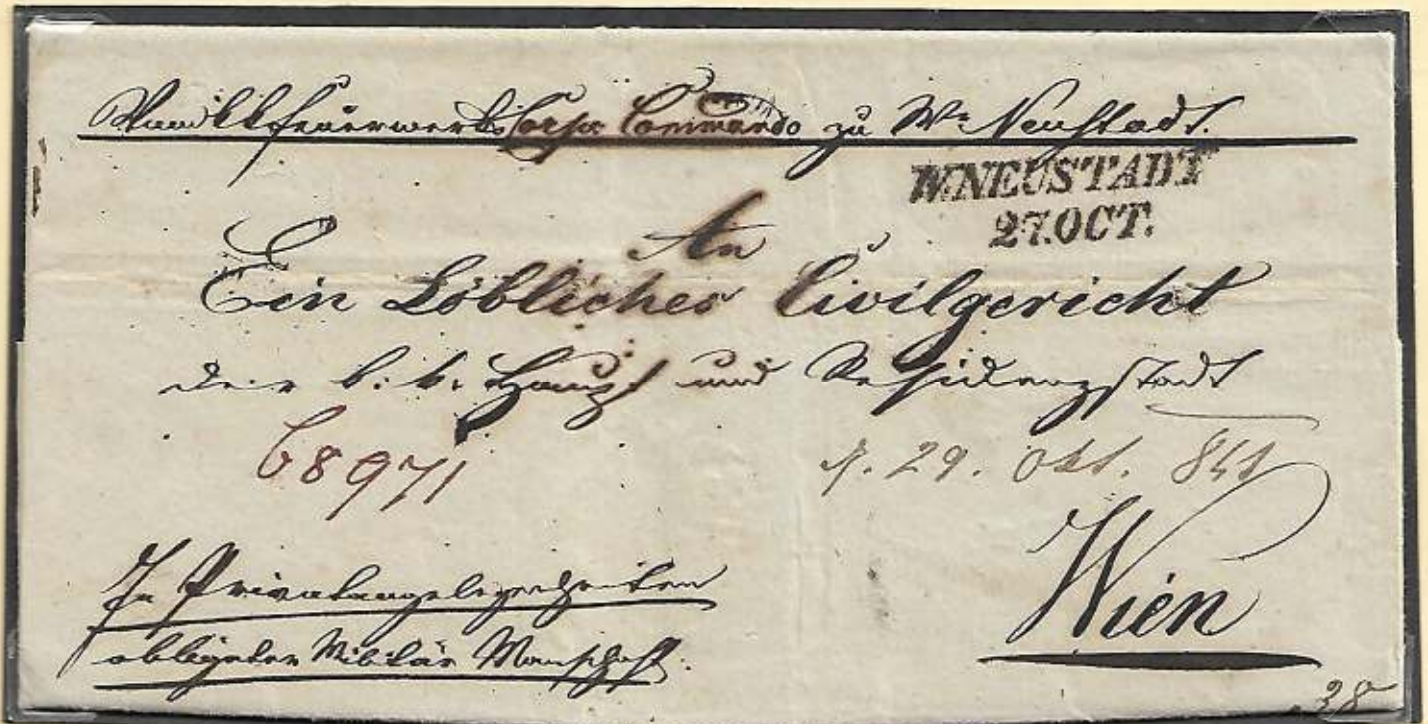 Vom k k Feuerwerks Corps Commando zu Wr Neustadt.
W.NEUSTADT
27.OCT.
An
Ein Löbliches Civilgericht
der k: k: Haupt und Residenzstadt
68971
29. Okt. 841
Wien
In Privatangelegenheiten
obligater Militär Manschaft.
38